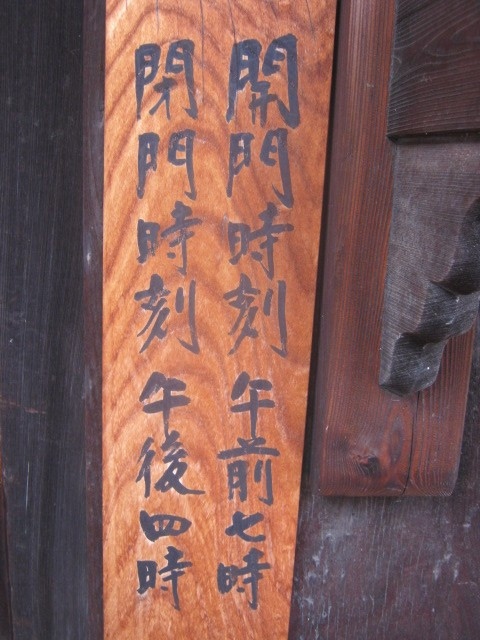 開門時刻 午前七時
閉門時刻 午後四時